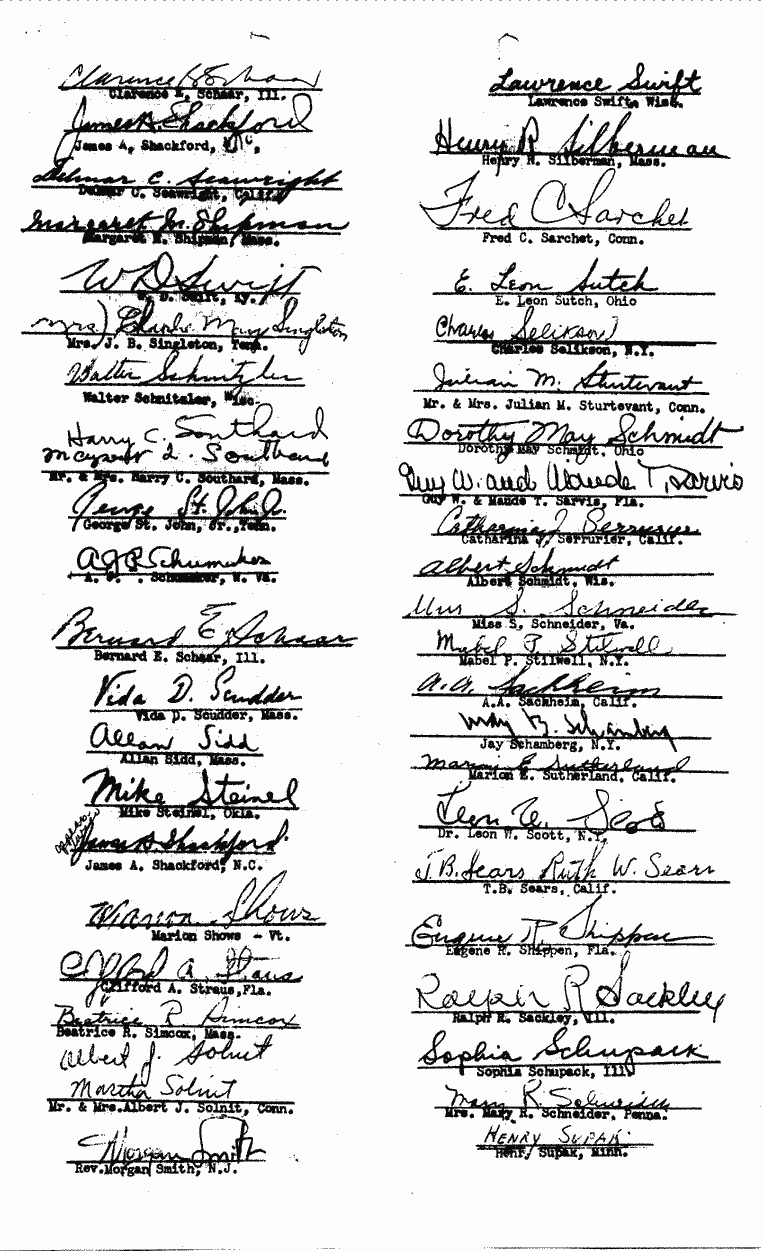 Clarence E. Schaar
Clarence E. Schaar, Ill.
James A. Shackford
James A. Shackford, N.C.
Delmar C. Seawright
Delmar C. Seawright, Calif.
Margaret M. Shipman
Margaret M. Shipman, Mass.
W D Swift
W. D. Swift, Ky.
(Mrs) Charlie May Singleton
Mrs. J. B. Singleton, Tenn.
Walter Schnitzler
Walter Schnitzler, Wisc.
Harry C. Southard
Southard
Mr. & Mrs. Harry C. Southard, Mass.
George St. John Jr.
George St. John, Jr., Tenn.
Schumaker, W. Va.
Bernard E. Schaar
Bernard E. Schaar, Ill.
Vida D. Scudder
Vida D. Scudder, Mass.
Allan Sidd
Allan Sidd, Mass.
Mike Steinel
Mike Steinel, Okla.
James A. Shackford
James A. Shackford, N.C.
Marion Shows
Marion Shows - Vt.
Clifford A. Straus
Clifford A. Straus, Fla.
Beatrice R Simcox
Beatrice R. Simcox, Mass.
Albert J. Solnit
Martha Solnit
Mr. & Mrs. Albert J. Solnit, Conn.
Morgan Smith
Rev. Morgan Smith, N.J.
Lawrence Swift
Lawrence Swift, Wisc.
Henry R Silberman
Henry R. Silberman, Mass.
Fred C Sarchet
Fred C. Sarchet, Conn.
E. Leon Sutch
E. Leon Sutch, Ohio
Charles Selikson
Charles Selikson, N.Y.
Julian M. Sturtevant
Mr. & Mrs. Julian M. Sturtevant, Conn.
Dorothy May Schmidt
Dorothy May Schmidt, Ohio
Guy W. and Maude T. Sarvis
Guy W. & Maude T. Sarvis, Fla.
Catharina J Serrurier
Catharina J. Serrurier, Calif.
Albert Schmidt
Albert Schmidt, Wis.
Miss S. Schneider
Miss S, Schneider, Va.
Mabel P Stilwell
Mabel P. Stilwell, N.Y.
A. A. Sackheim
A.A. Sackheim, Calif.
Schamberg
Jay Schamberg, N.Y.
Marion E Sutherland
Marion E. Sutherland, Calif.
Leon W. Scott
Dr. Leon W. Scott, N.Y.
T.B. Sears Ruth W. Sears
T.B. Sears, Calif.
Eugene R Shippen
Eugene R. Shippen, Fla.
Ralph R Sackley
Ralph R. Sackley, Ill.
Sophia Schupack
Sophia Schupack, Ill.
Mary R. Schneider
Mrs. Mary R. Schneider, Penna.
HENRY SUPAK
Henry Supak, Minn.